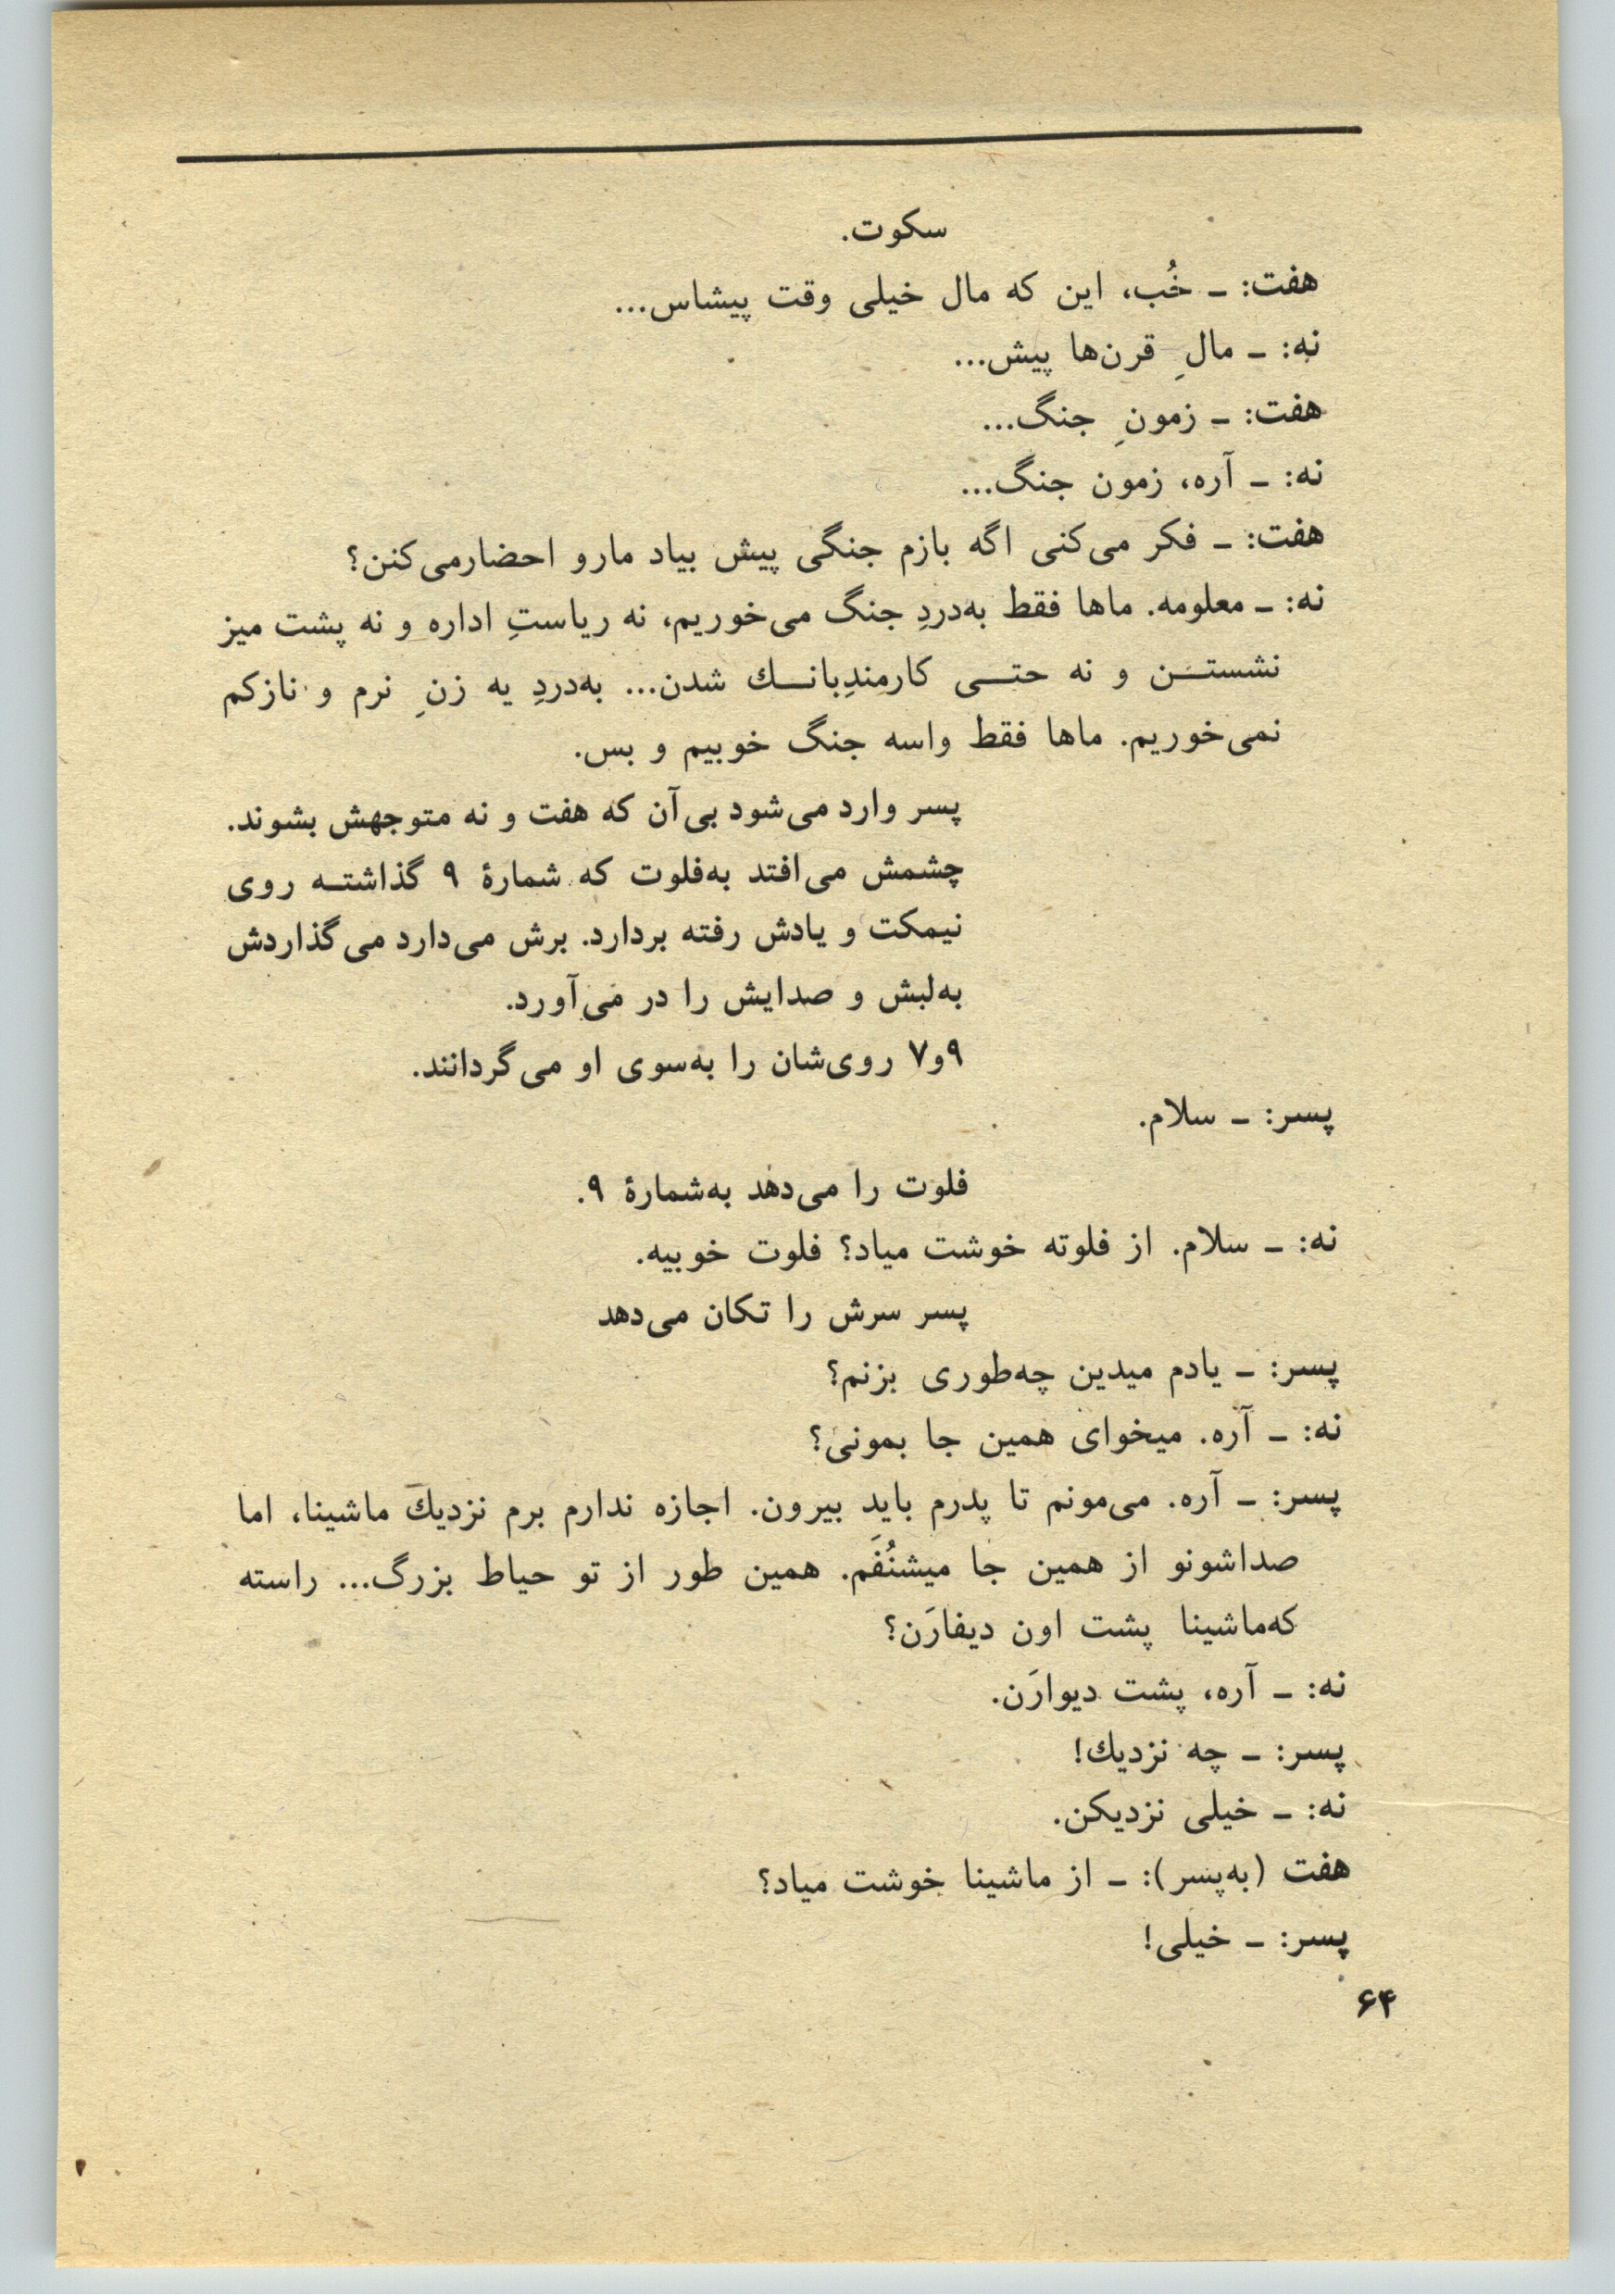 سکوت.
هفت: ـ خُب، این که مال خیلی وقت پیشاس...
نه: ـ مالِ قرن‌ها پیش...
هفت: ـ زمونِ جنگ...
نه: ـ آره، زمون جنگ...
هفت: ـ فکر می‌کنی اگه بازم جنگی پیش بیاد مارو احضارمی‌کنن؟
نه: ـ معلومه. ماها فقط به‌دردِ جنگ می‌خوریم، نه ریاستِ اداره و نه پشت میز
نشستـن و نه حتـی کارمندِبانـك شدن... به‌دردِ یه زنِ نرم و نازکم
نمی‌خوریم. ماها فقط واسه جنگ خوبیم و بس.
پسر وارد می‌شود بی‌آن که هفت و نه متوجهش بشوند.
چشمش می‌افتد به‌فلوت که شمارهٔ ۹ گذاشتـه روی
نیمکت و یادش رفته بردارد. برش می‌دارد می‌گذاردش
به‌لبش و صدایش را در می‌آورد.
۹و۷ روی‌شان را به‌سوی او می‌گردانند.
پسر: ـ سلام.
فلوت را می‌دهد به‌شمارهٔ ۹.
نه: ـ سلام. از فلوته خوشت میاد؟ فلوت خوبیه.
پسر سرش را تکان می‌دهد
پسر: ـ یادم میدین چه‌طوری بزنم؟
نه: ـ آره. میخوای همین جا بمونی؟
پسر: ـ آره. می‌مونم تا پدرم باید بیرون. اجازه ندارم برم نزدیك ماشینا، اما
صداشونو از همین جا میشنُفَم. همین طور از تو حیاط بزرگ... راسته
که‌ماشینا پشت اون دیفارَن؟
نه: ـ آره، پشت دیوارَن.
پسر: ـ چه نزدیك!
نه: ـ خیلی نزدیکن.
هفت (به‌پسر): ـ از ماشینا خوشت میاد؟
پسر: ـ خیلی!
۶۴